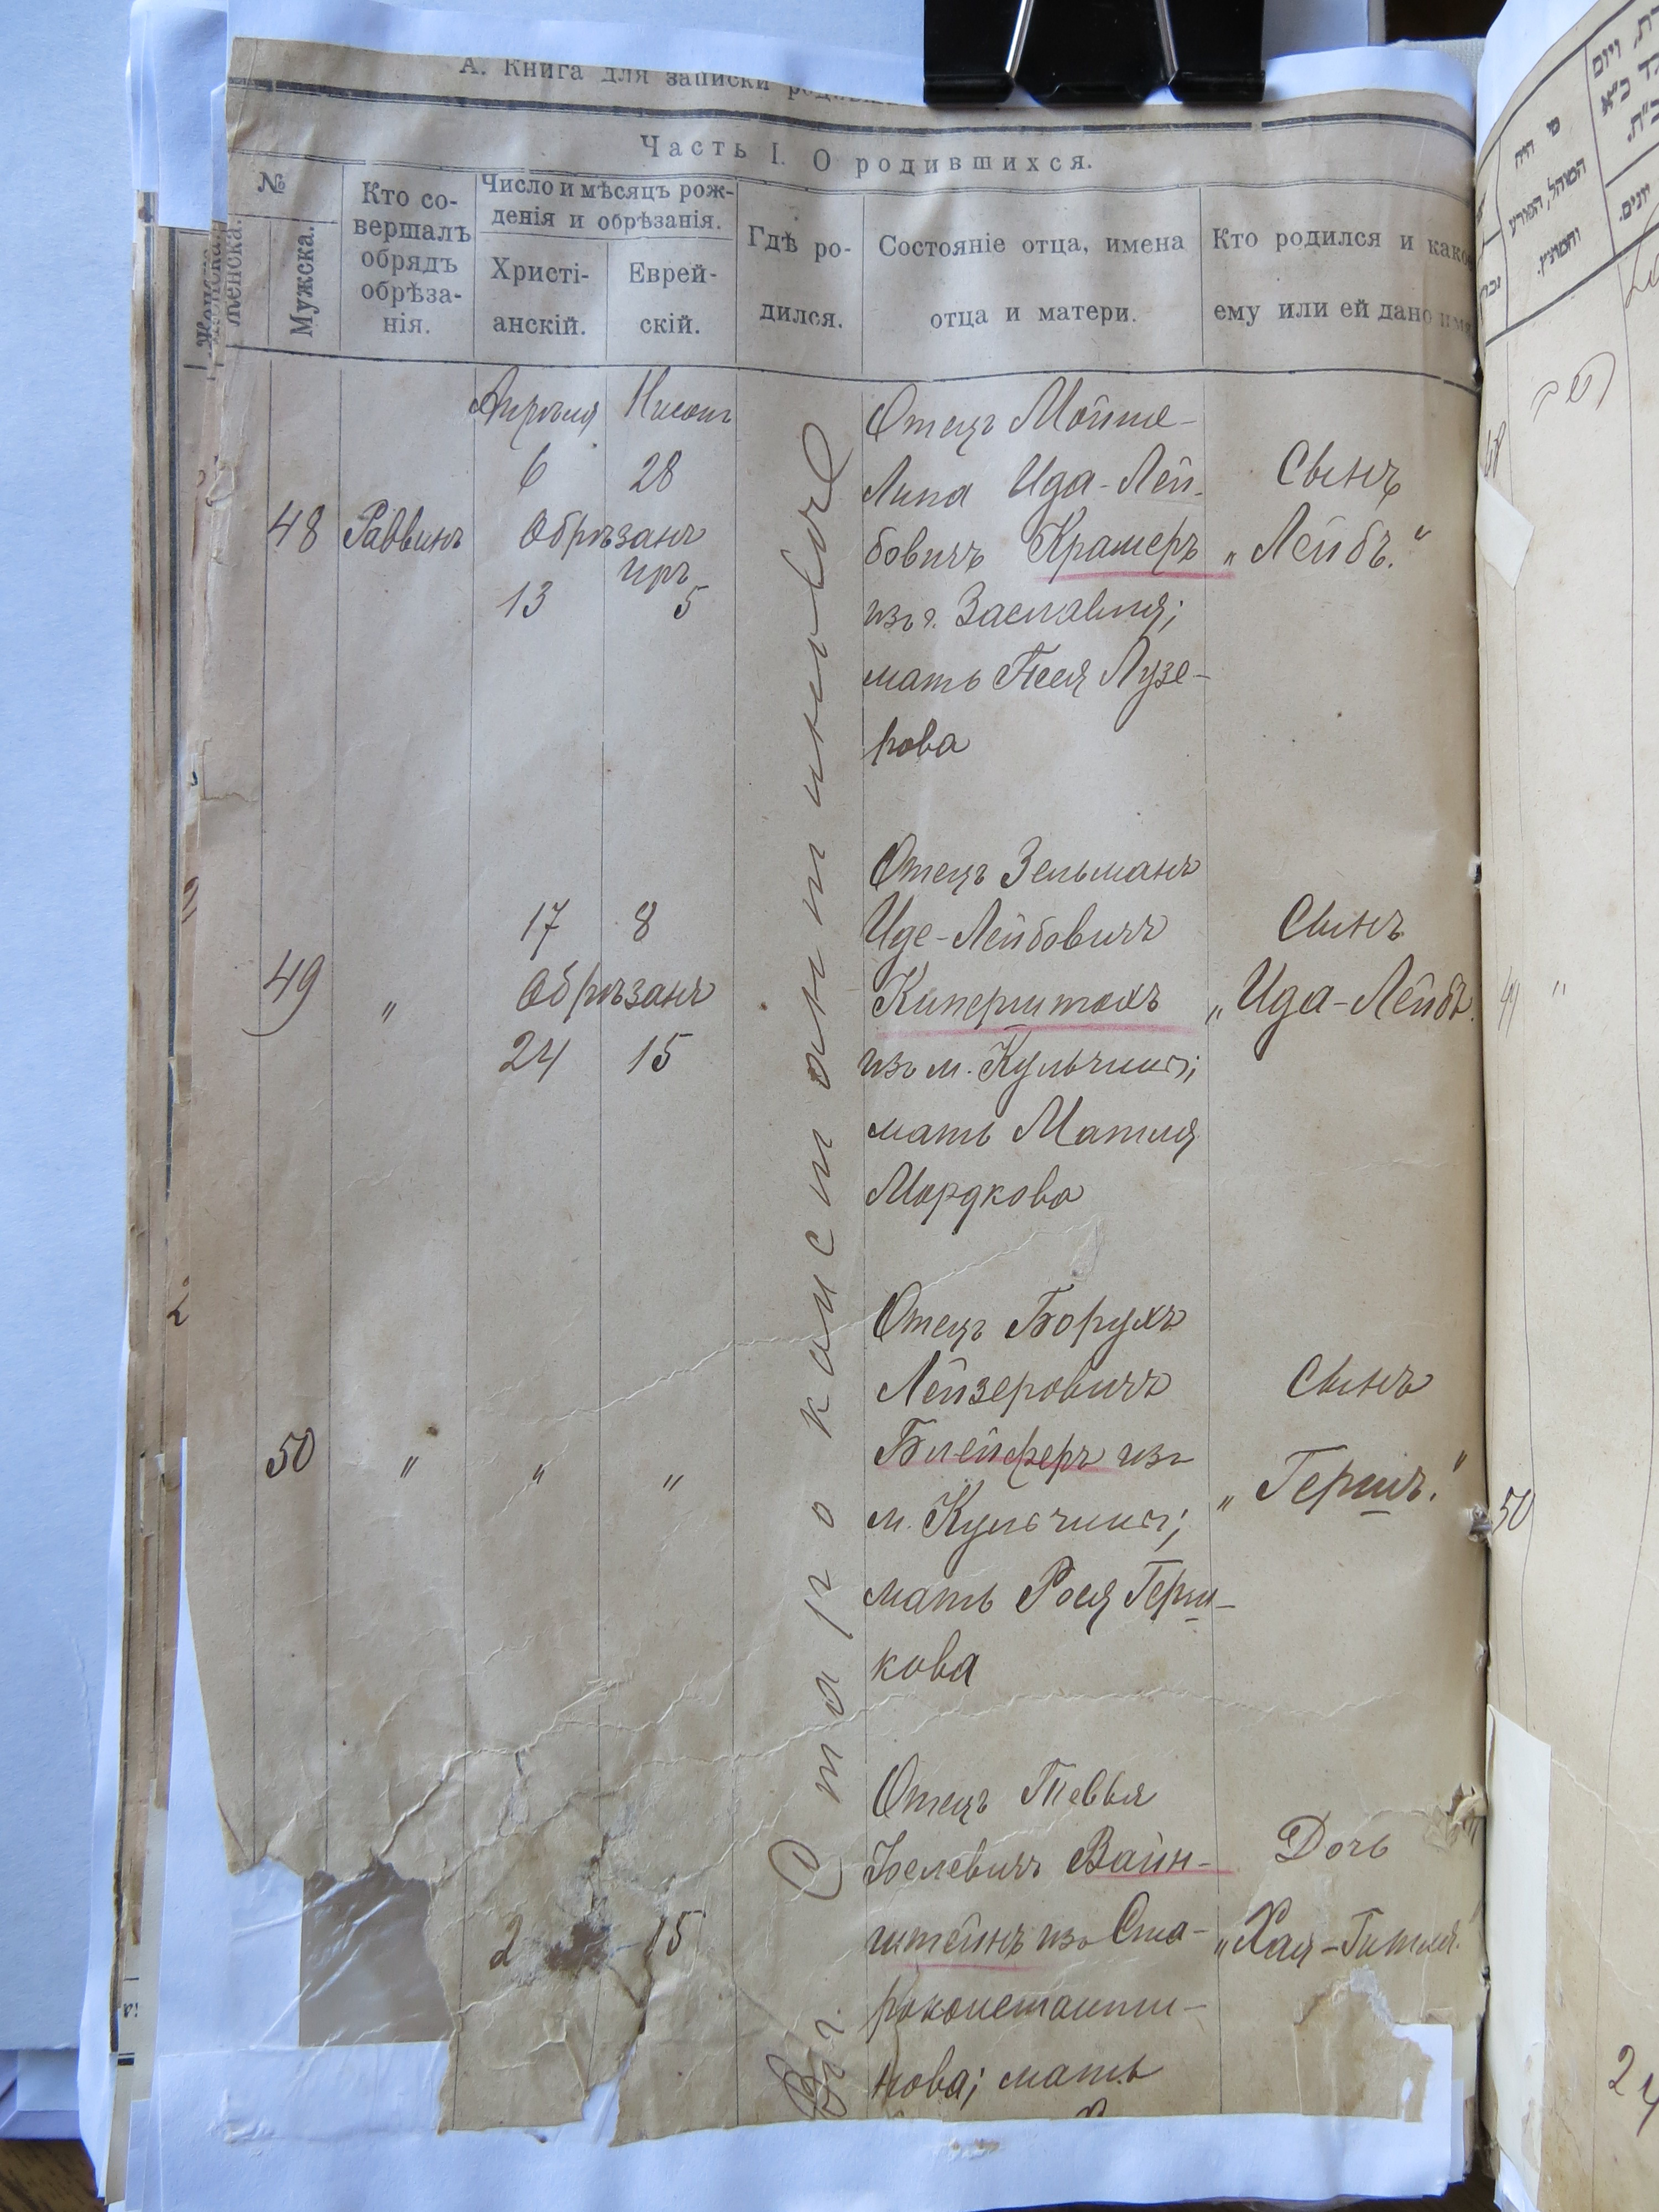 А. Книга для записки
Часть I. О родившихся.
№
Женска.
Мужска.
Кто со-
вершалъ
обрядъ
обрѣза-
нія.
Число и мѣсяцъ рож-
денія и обрѣзанія.
Христі-
анскій.
Еврей-
скій.
Гдѣ ро-
дился.
Состояніе отца, имена
отца и матери.
Кто родился и како
ему или ей дано имя
Въ г. Староконстантиновѣ
48
Раввинъ
Апрѣля Нисонъ
6 28
Обрѣзанъ
Иръ
13 5
Отецъ Мойше-
Липа Ида-Лей-
бовичъ Крамеръ
изъ г. Заславля;
мать Песя Лузе-
рова
Сынъ
„Лейбъ.“
49
„
17 8
Обрѣзанъ
24 15
Отецъ Зельманъ
Иде-Лейбовичъ
Киперштокъ
изъ м. Кульчинъ;
мать Матля
Мордкова
Сынъ
„Ида-Лейбъ.
50
„
„ „
Отецъ Борухъ
Лейзеровичъ
Блейферъ изъ
м. Кульчинъ;
мать Рося Герш-
кова
Сынъ
„Гершъ.“
2 15
Отецъ Тевья
Іселевичъ Вайн-
штейнъ изъ Ста-
роконстанти-
нова; мать
Дочь
„Хая-Гитля.
50
24